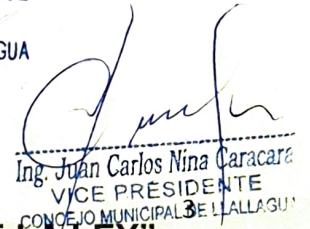 GUA
Ing. Juan Carlos Nina Caracara
VICE PRESIDENTE
CONCEJO MUNICIPAL DE LLALLAGU
3